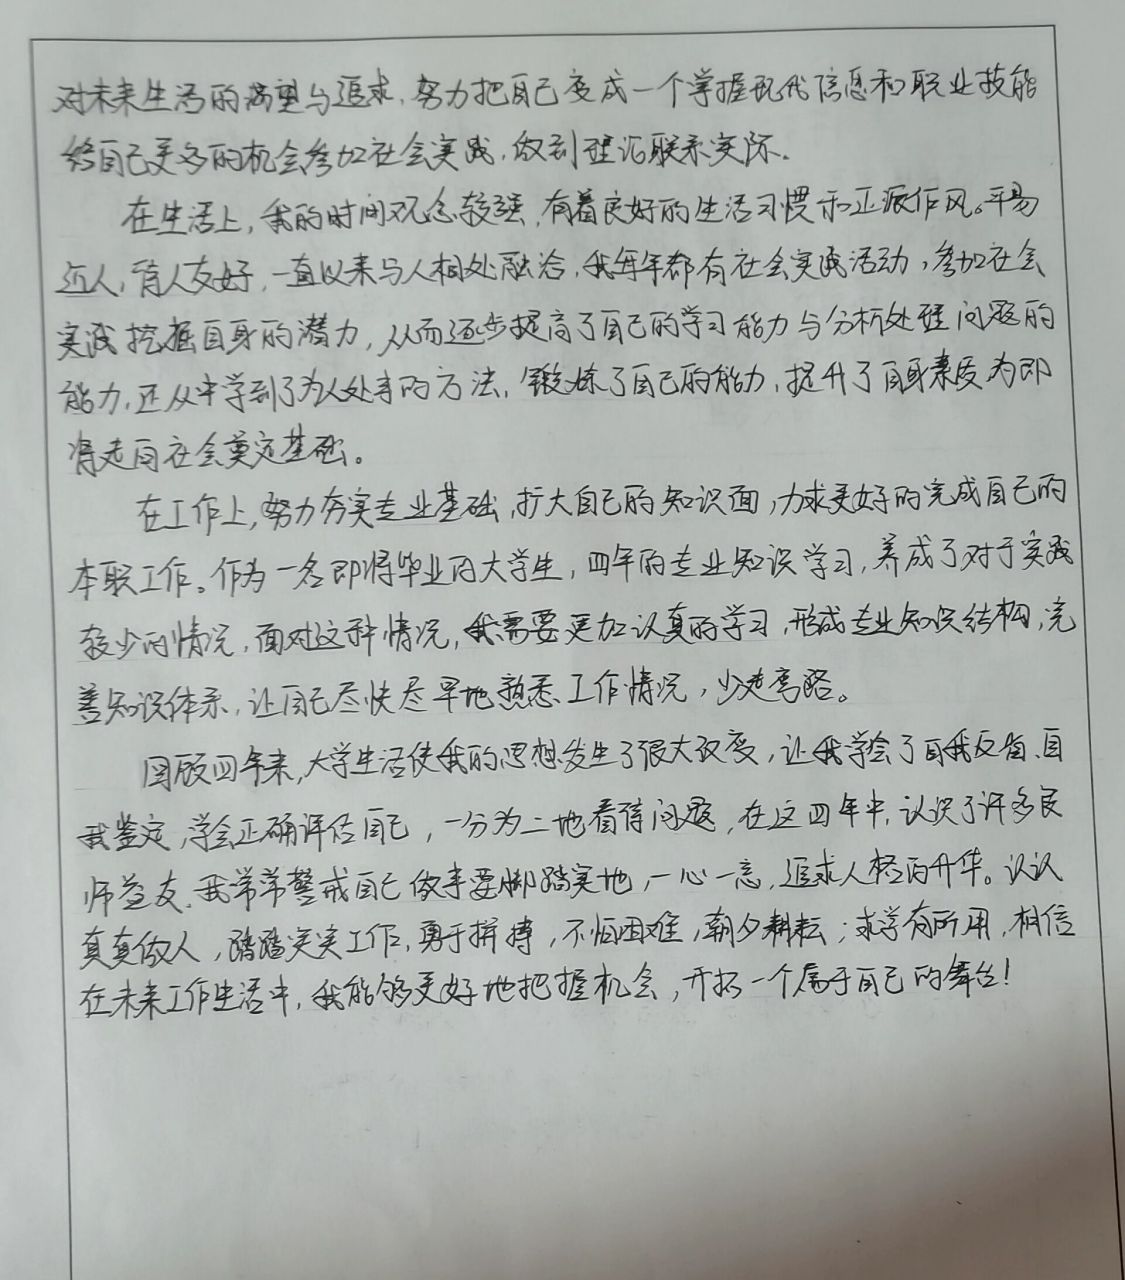 对未来生活的渴望与追求，努力把自己变成一个掌握现代信息和职业技能
给自己更多的机会参加社会实践，做到理论联系实际。
在生活上，我的时间观念较强，有着良好的生活习惯和正派作风。平易
近人，待人友好，一直以来与人相处融洽，我每年都有社会实践活动，参加社会
实践挖掘自身的潜力，从而逐步提高了自己的学习能力与分析处理问题的
能力，还从中学到了为人处事的方法，锻炼了自己的能力，提升了自身素质，为即
将走向社会奠定基础。
在工作上，努力夯实专业基础，扩大自己的知识面，力求更好的完成自己的
本职工作。作为一名即将毕业的大学生，四年的专业知识学习，养成了对于实践
较少的情况，面对这种情况，我需要更加认真的学习，形成专业知识结构，完
善知识体系，让自己尽快尽早地熟悉工作情况，少走弯路。
回顾四年来，大学生活使我的思想发生了很大改变，让我学会了自我反省、自
我鉴定，学会正确评估自己，一分为二地看待问题，在这四年中，认识了许多良
师益友，我常常警戒自己做事要脚踏实地，一心一意，追求人格的升华。认认
真真做人，踏踏实实工作，勇于拼搏，不怕困难，朝夕耕耘；求学有所用，相信
在未来工作生活中，我能够更好地把握机会，开拓一个属于自己的舞台！